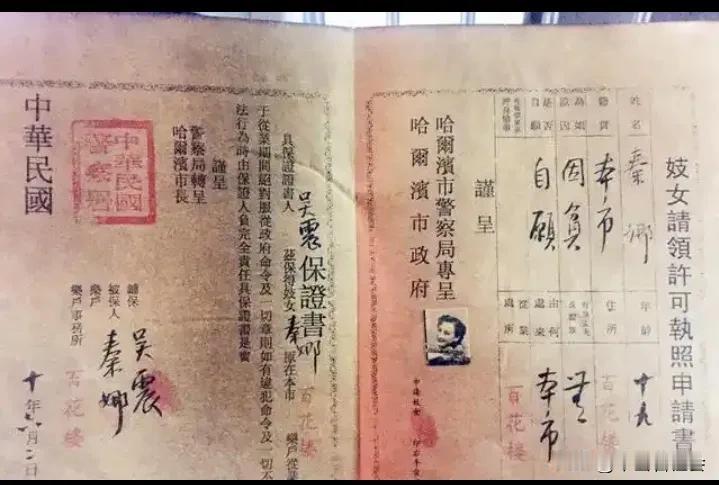 妓女請領許可執照申請書
姓名 秦娜 年齡 十九
籍貫 本市 住所 百花樓
為娼原因 因貧 無
是否自願 自願 由何處來 本市
從業處所 百花樓
謹呈
哈爾濱市警察局專呈
哈爾濱市政府
保證書
具保證書人 吳震 茲保得妓女 秦娜 原在本市 百花樓 樂戶從
于從業期間絕對服從政府命令及一切章則如有違犯命令及一切不
法行為時由保證人負完全責任具保證書是實
謹呈
警察局轉呈
哈爾濱市長
鋪保 吳震
被保人 秦娜
樂戶
樂戶事務所 百花樓
中華民國
中華民國警察局
十年六月二日